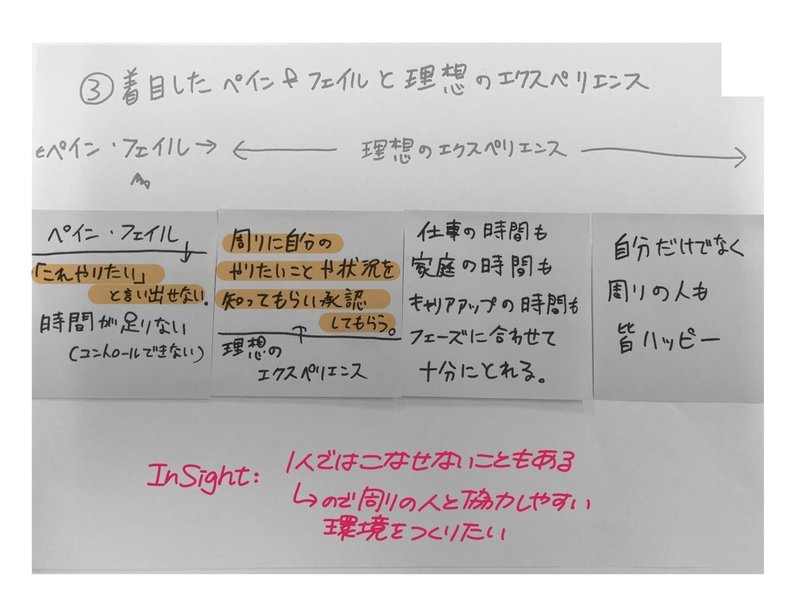 ③着目したペイン&フェイルと理想のエクスペリエンス
ペイン・フェイル → ← 理想のエクスペリエンス →
ペイン・フェイル
「これやりたい」
と言い出せない.
時間が足りない
(コントロールできない)
周りに自分の
やりたいことや状況を
知ってもらい承認
してもらう。
理想の
エクスペリエンス
仕事の時間も
家庭の時間も
キャリアアップの時間も
フェーズに合わせて
十分にとれる。
自分だけでなく
周りの人も
皆ハッピー
InSight: 1人ではこなせないこともある
↳ので周りの人と協力しやすい
環境をつくりたい